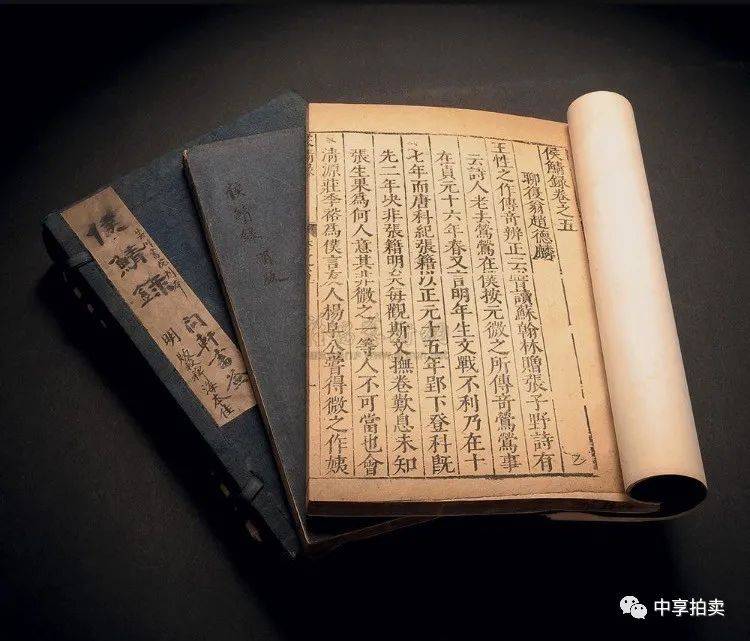 侯鯖錄卷之五
聊復翁趙德麟
王性之作傳奇辨正云嘗讀蘇翰林贈張子野詩有
云詩人老去鶯鶯在僕按元微之所傳奇鶯鶯事
在貞元十六年春又言明年生文戰不利乃在十
七年而唐科紀張籍以正元十五年郢下登科既
先二年決非張籍明矣每觀斯文撫卷歎息未知
張生果爲何人意其非微之一等人不可當也會
清源莊季裕爲僕言友人楊阜公嘗得微之作姨
侯鯖錄
侯鯖錄
明
中享拍卖